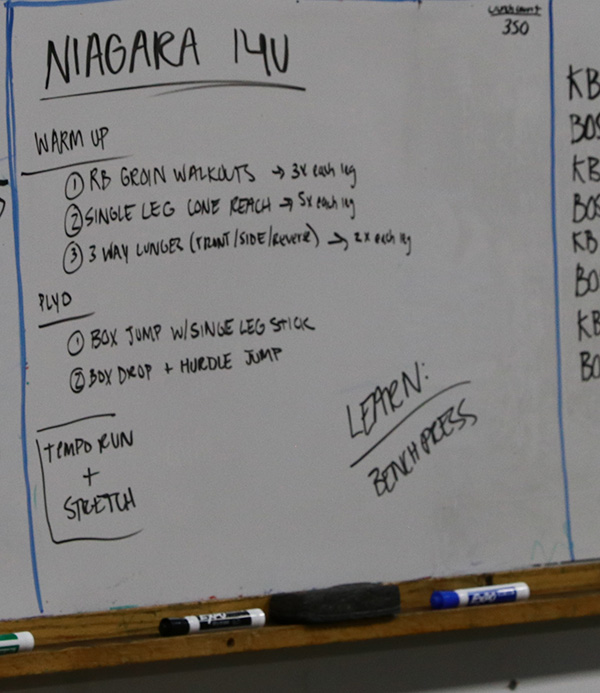 350
NIAGARA 14U
WARM UP
① RB GROIN WALKOUTS → 3x each leg
② SINGLE LEG CONE REACH → 5x each leg
③ 3 WAY LUNGES (FRONT/SIDE/Reverse) → 2x each leg
PLYO
① BOX JUMP W/SINGLE LEG STICK
② BOX DROP + HURDLE JUMP
LEARN:
BENCH PRESS
TEMPO RUN
+
STRETCH
KB
BOS
KB
BOS
KB
BO
KB
BO
EXPO